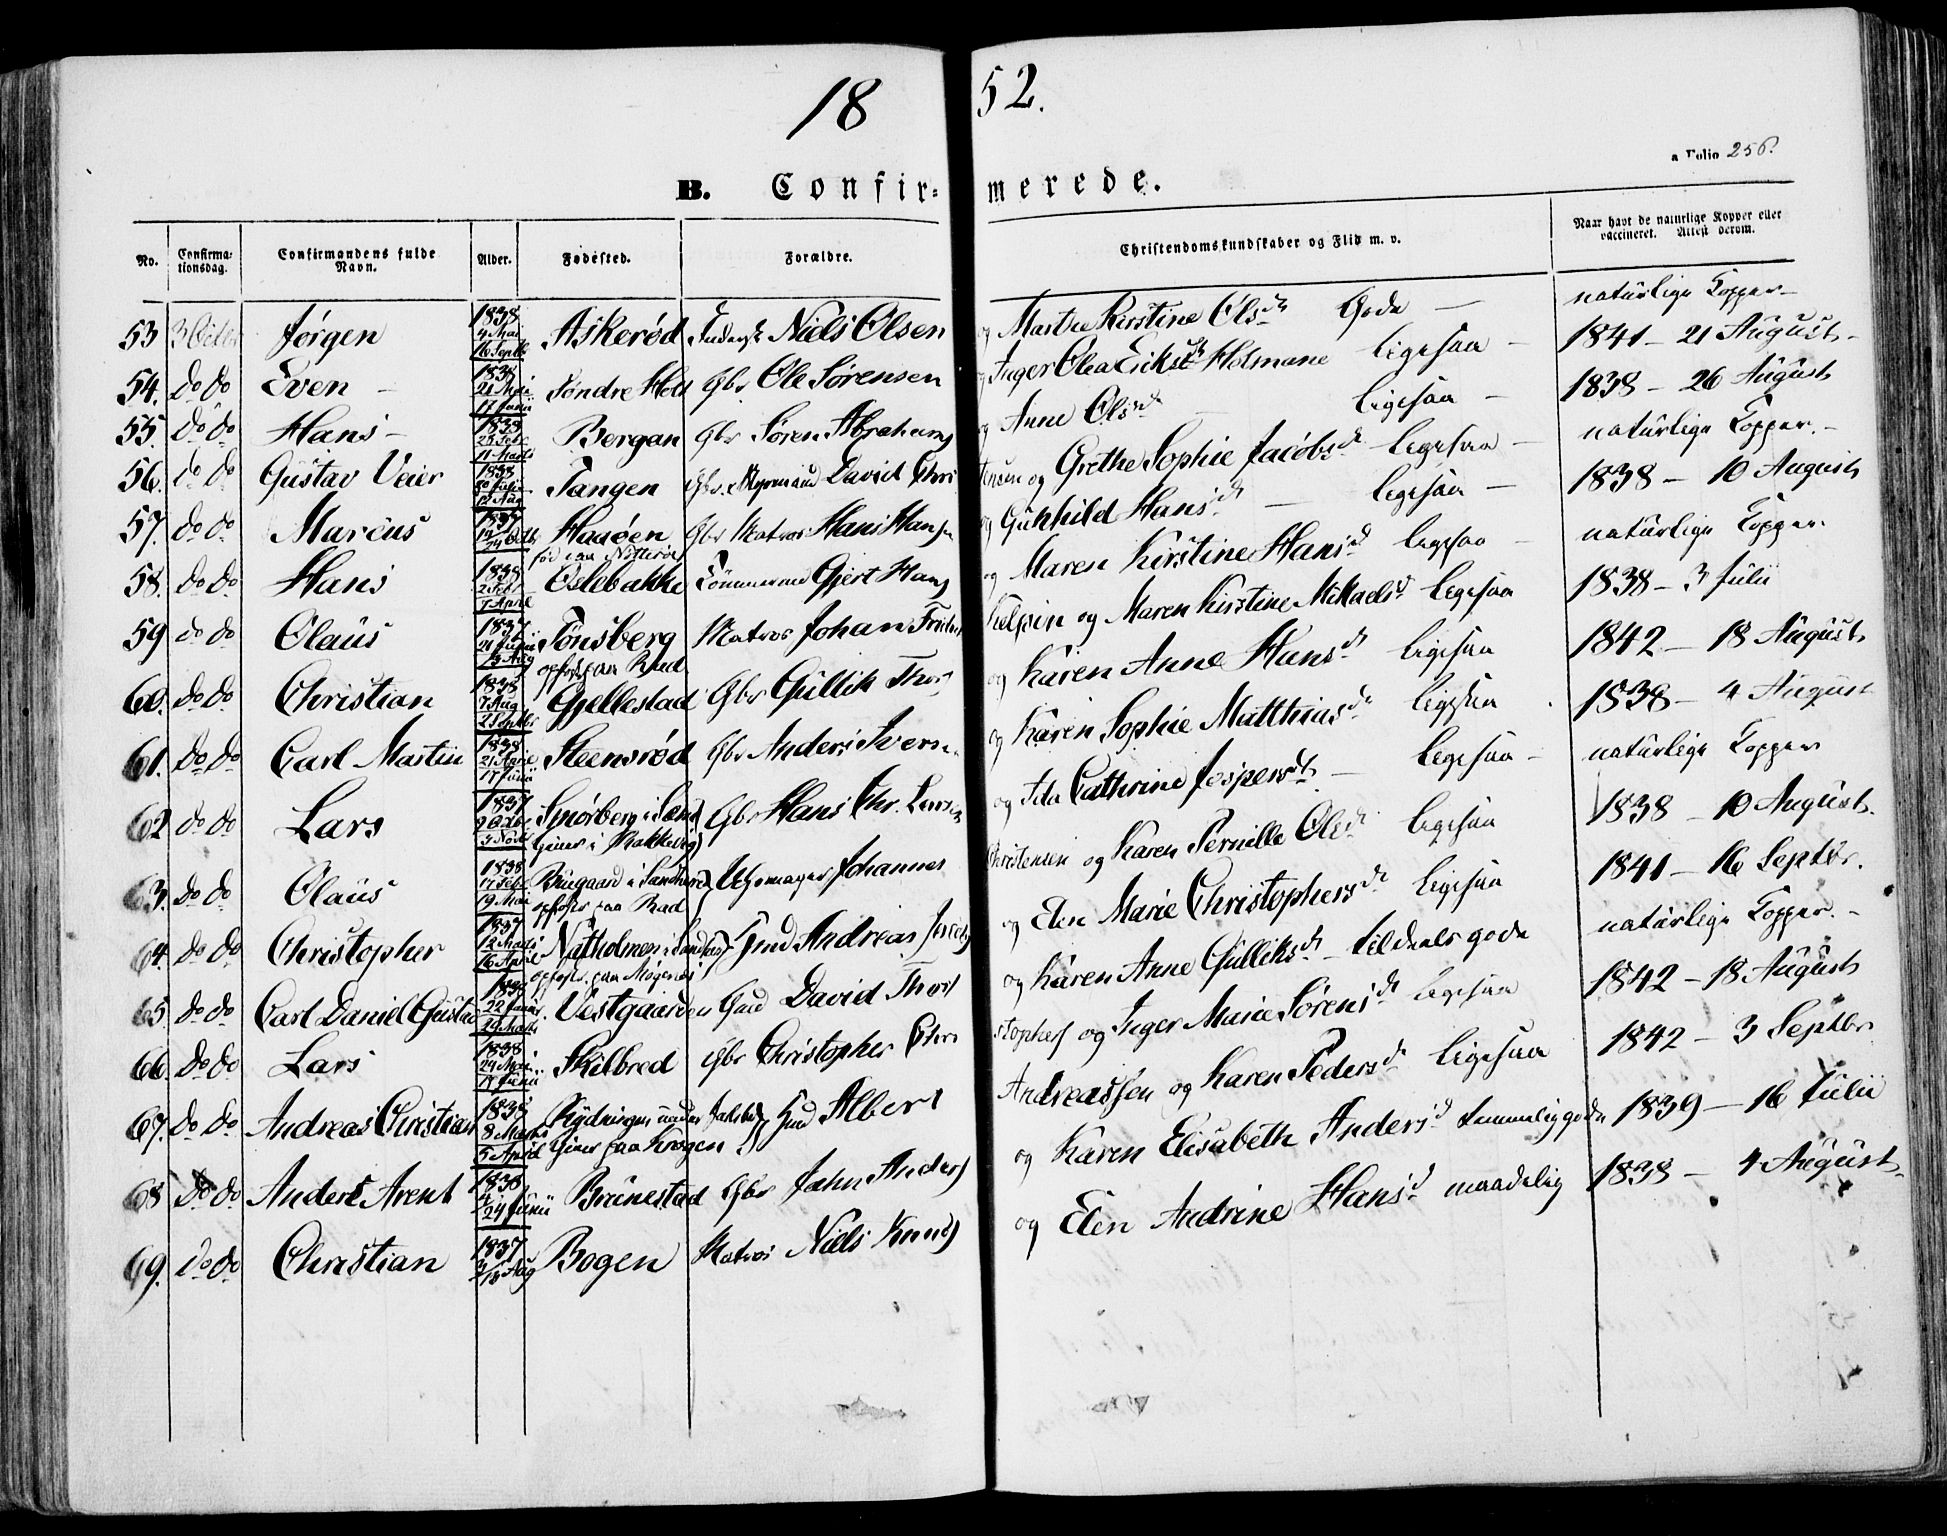 18 52.
a Folio 256.
B. Confir= merede.
No. Confirma-tionsdag. Confirmandens fulde Navn. Alder. Fødested. Forældre. Christendomskundskaber og Flid m. v. Naar havt de naturlige Kopper eller vaccineret. Attest derom.
53 3 Octbr Jørgen 1838 4 Mai 16 Septbr Askerød Niels Olsen og Marthe Kirstine Olsd. Gode – naturlige Kopper –
54. do do Even – 1838 21 Mai 17 Junii Søndre Holt Gbr Ole Sørensen og Inger Olea Eriksd. Holmane ligesaa – 1841 – 21 August –
55. do do Hans – 1838 25 Febr 11 Marts Bergan Gbr Søren Abrahams og Anne Olsd. ligesaa – 1838 – 26 August
56. do do Gustav Veier 1838 20 Julii 12 Aug Tangen Gbr. Styrmand David Chri stensen og Grethe Sophie Jacobsd. ligesaa – naturlige Kopper. –
57. do do Marcus 1837 19/24 Octb Haaøen Gbr Matros Hans Hansen og Gunhild Hansd. – ligesaa – 1838 – 10 August
58. do do Hans 1838 2 Febr 7 April fød paa Nøtterøe Oslebakke Tømmermd Gjert Hans og Maren Kirstine Hansd. ligesaa – naturlige Kopper
59 do do Olaus 1837 21 Junii 13 Aug Tønsberg opfost. paa Rød Matros Johan Fridr Kelpin og Maren Kirstine Mikaelsd. ligesaa 1838 – 3 Julii
60. do do Christian 1838 7 Aug 23 Septbr Gjellestad Gbr Gullik Thor og Karen Anne Hansd. ligesaa 1842 – 18 August
61. do do Carl Martin 1838 21 April 17 Junii Steensrød Gbr Anders Ivers og Karen Sophie Matthiasd. ligesaa 1838 – 4 August
62 do do Lars 1837 2 Octbr 5 Novb Smørberg i Sem Gbr Hans Chr. Larsen og Ida Cathrine Jespersd. – ligesaa – naturlige Kopper
63. do do Olaus 1838 17 Febr 19 Mai i Sandherred opfost. paa Rød Uhrmager Johannes Christensen og Karen Pernille Olsd. ligesaa 1838 – 10 August.
64. do do Christopher 1837 12 Marts 16 April Natholmen i Sandherred opfost. paa Møgenæs Gmd Andreas Jacobs og Elen Marie Christophersd. ligesaa 1841 – 16 Septbr.
65 do do Carl Daniel Gustav 1838 22 Januar 29 Marts Vestgaarden Gmd David Thors og Karen Anne Gulliksd. – tildeels gode naturlige Kopper. –
66. do do Lars 1838 24 Mai 17 Junii Skilbred Gbr Christopher Chri stophers og Inger Marie Sørensd. ligesaa 1842 – 18 August
67. do do Andreas Christian 1838 8 Marts 5 April Rydningen under tjener paa Krogen Gmd Albert Andreassen og Karen Pedersd. ligesaa 1842 – 3 Septbr
68 do do Anders Arent 1838 24 Junii Brunestad Gbr Jahn Anders og Karen Elisabeth Andersd. temmelig gode 1839 – 16 Julii
69. do do Christian 1837 Aug Bogen Matros Niels Knuds og Elen Andrine Hansd. maadelig 1838 – 4 August